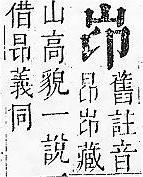 岇
舊註音
昂岇藏
山高貌一說
借昂義同